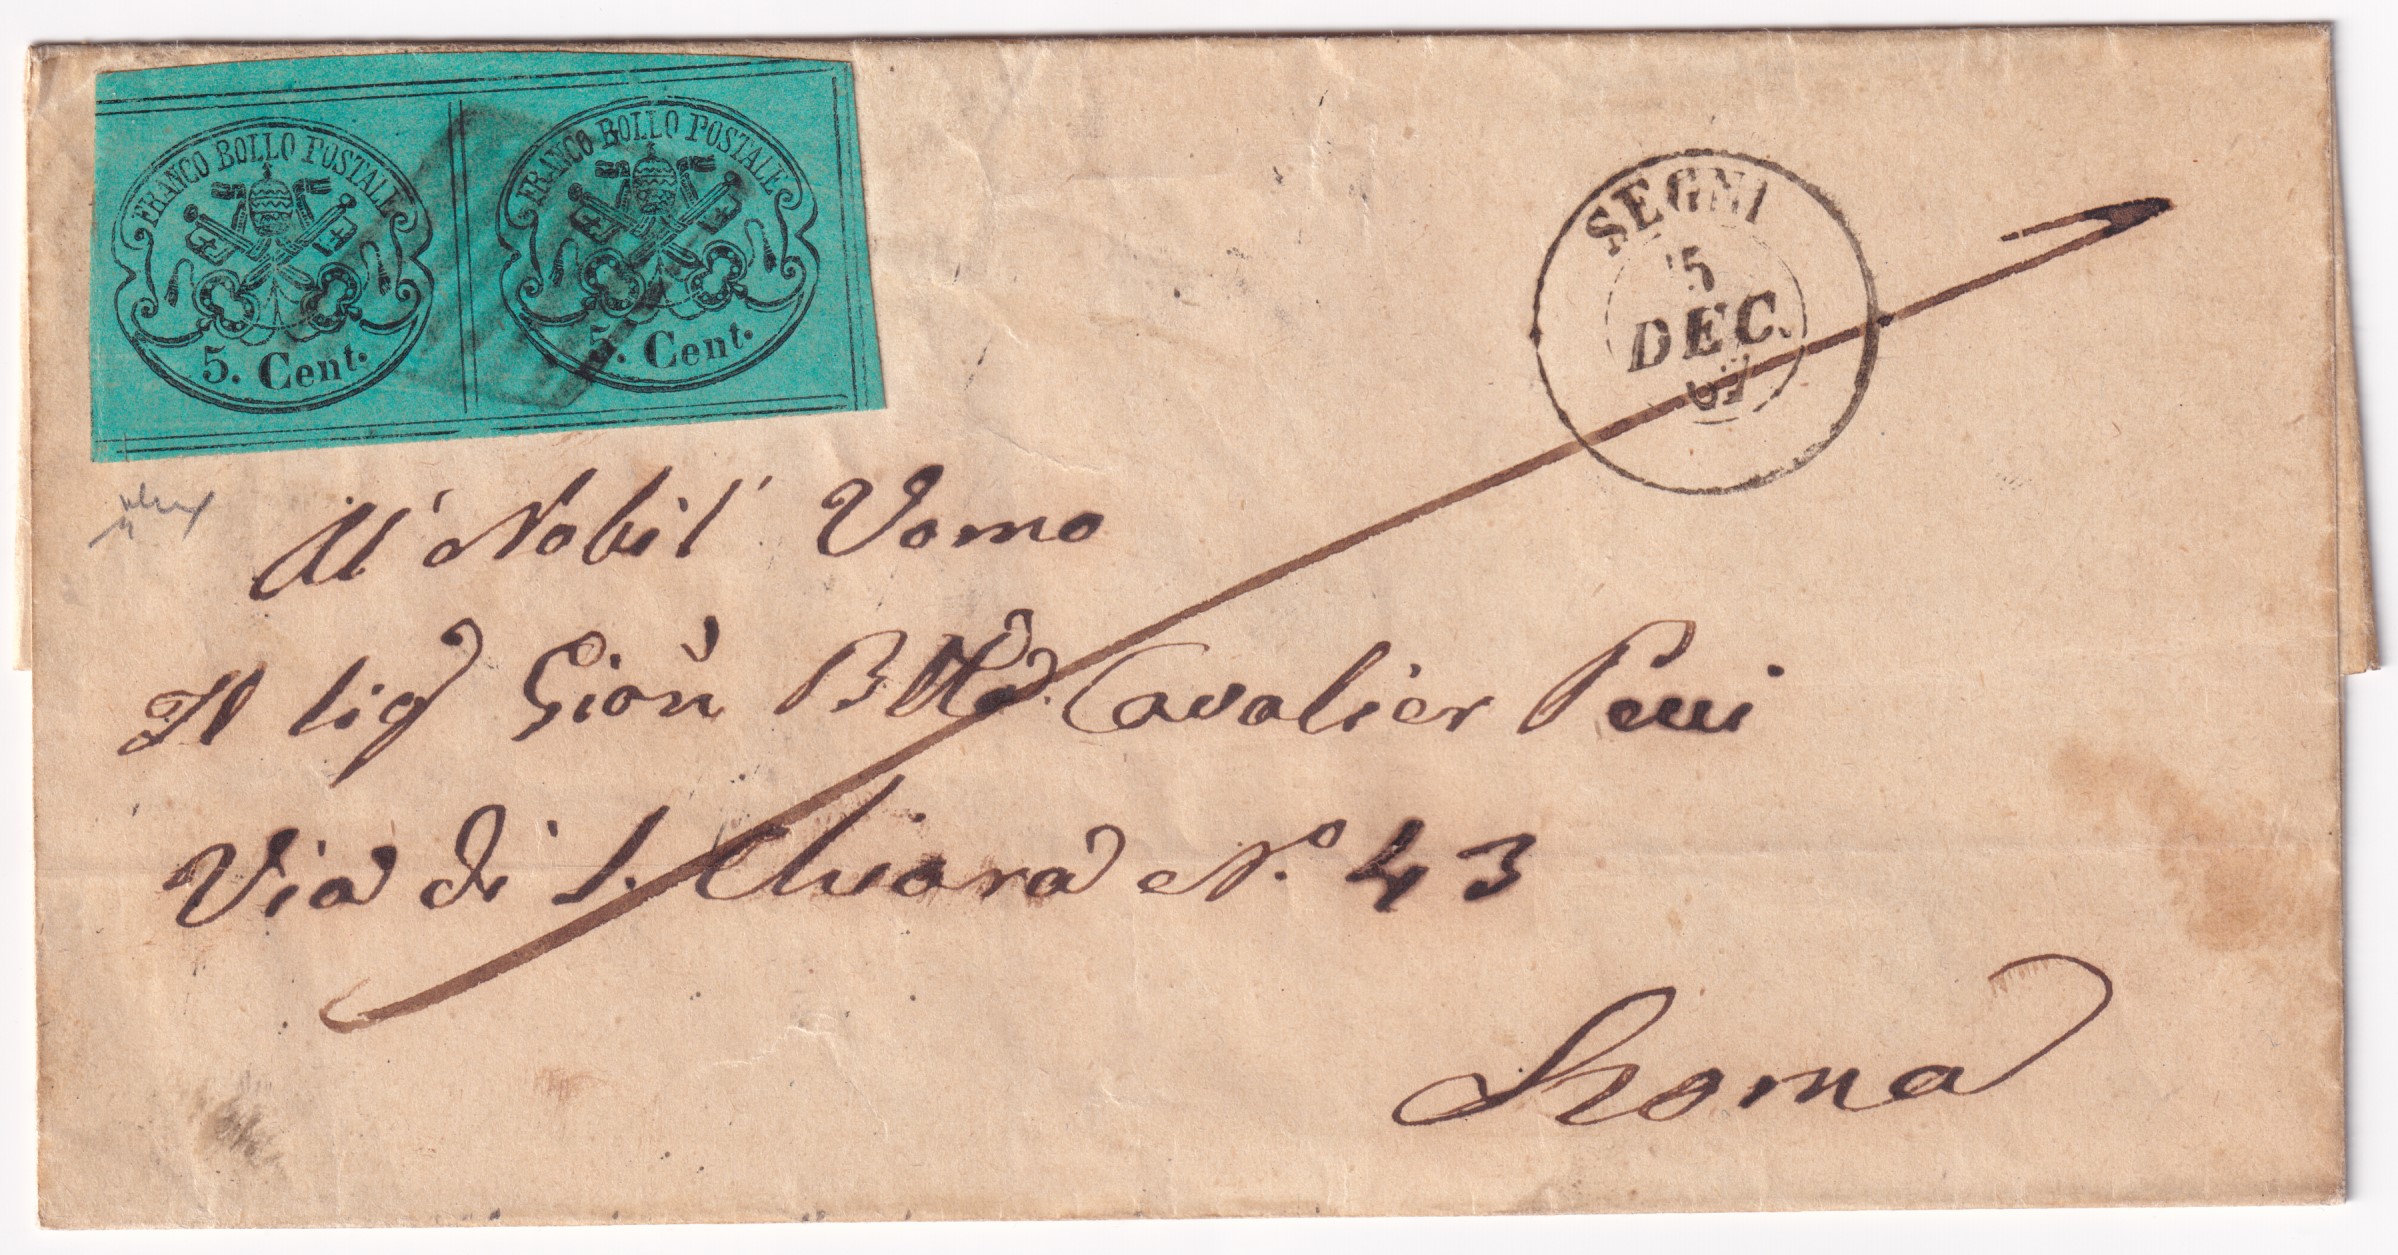 FRANCO BOLLO POSTALE
5. Cent.
FRANCO BOLLO POSTALE
5. Cent.
SEGNI
5
DEC.
67
Al' Nobil' Uomo
Il Sigr Gion Btta Cavalier Pecci
Via di S. Chiara No. 43
Roma